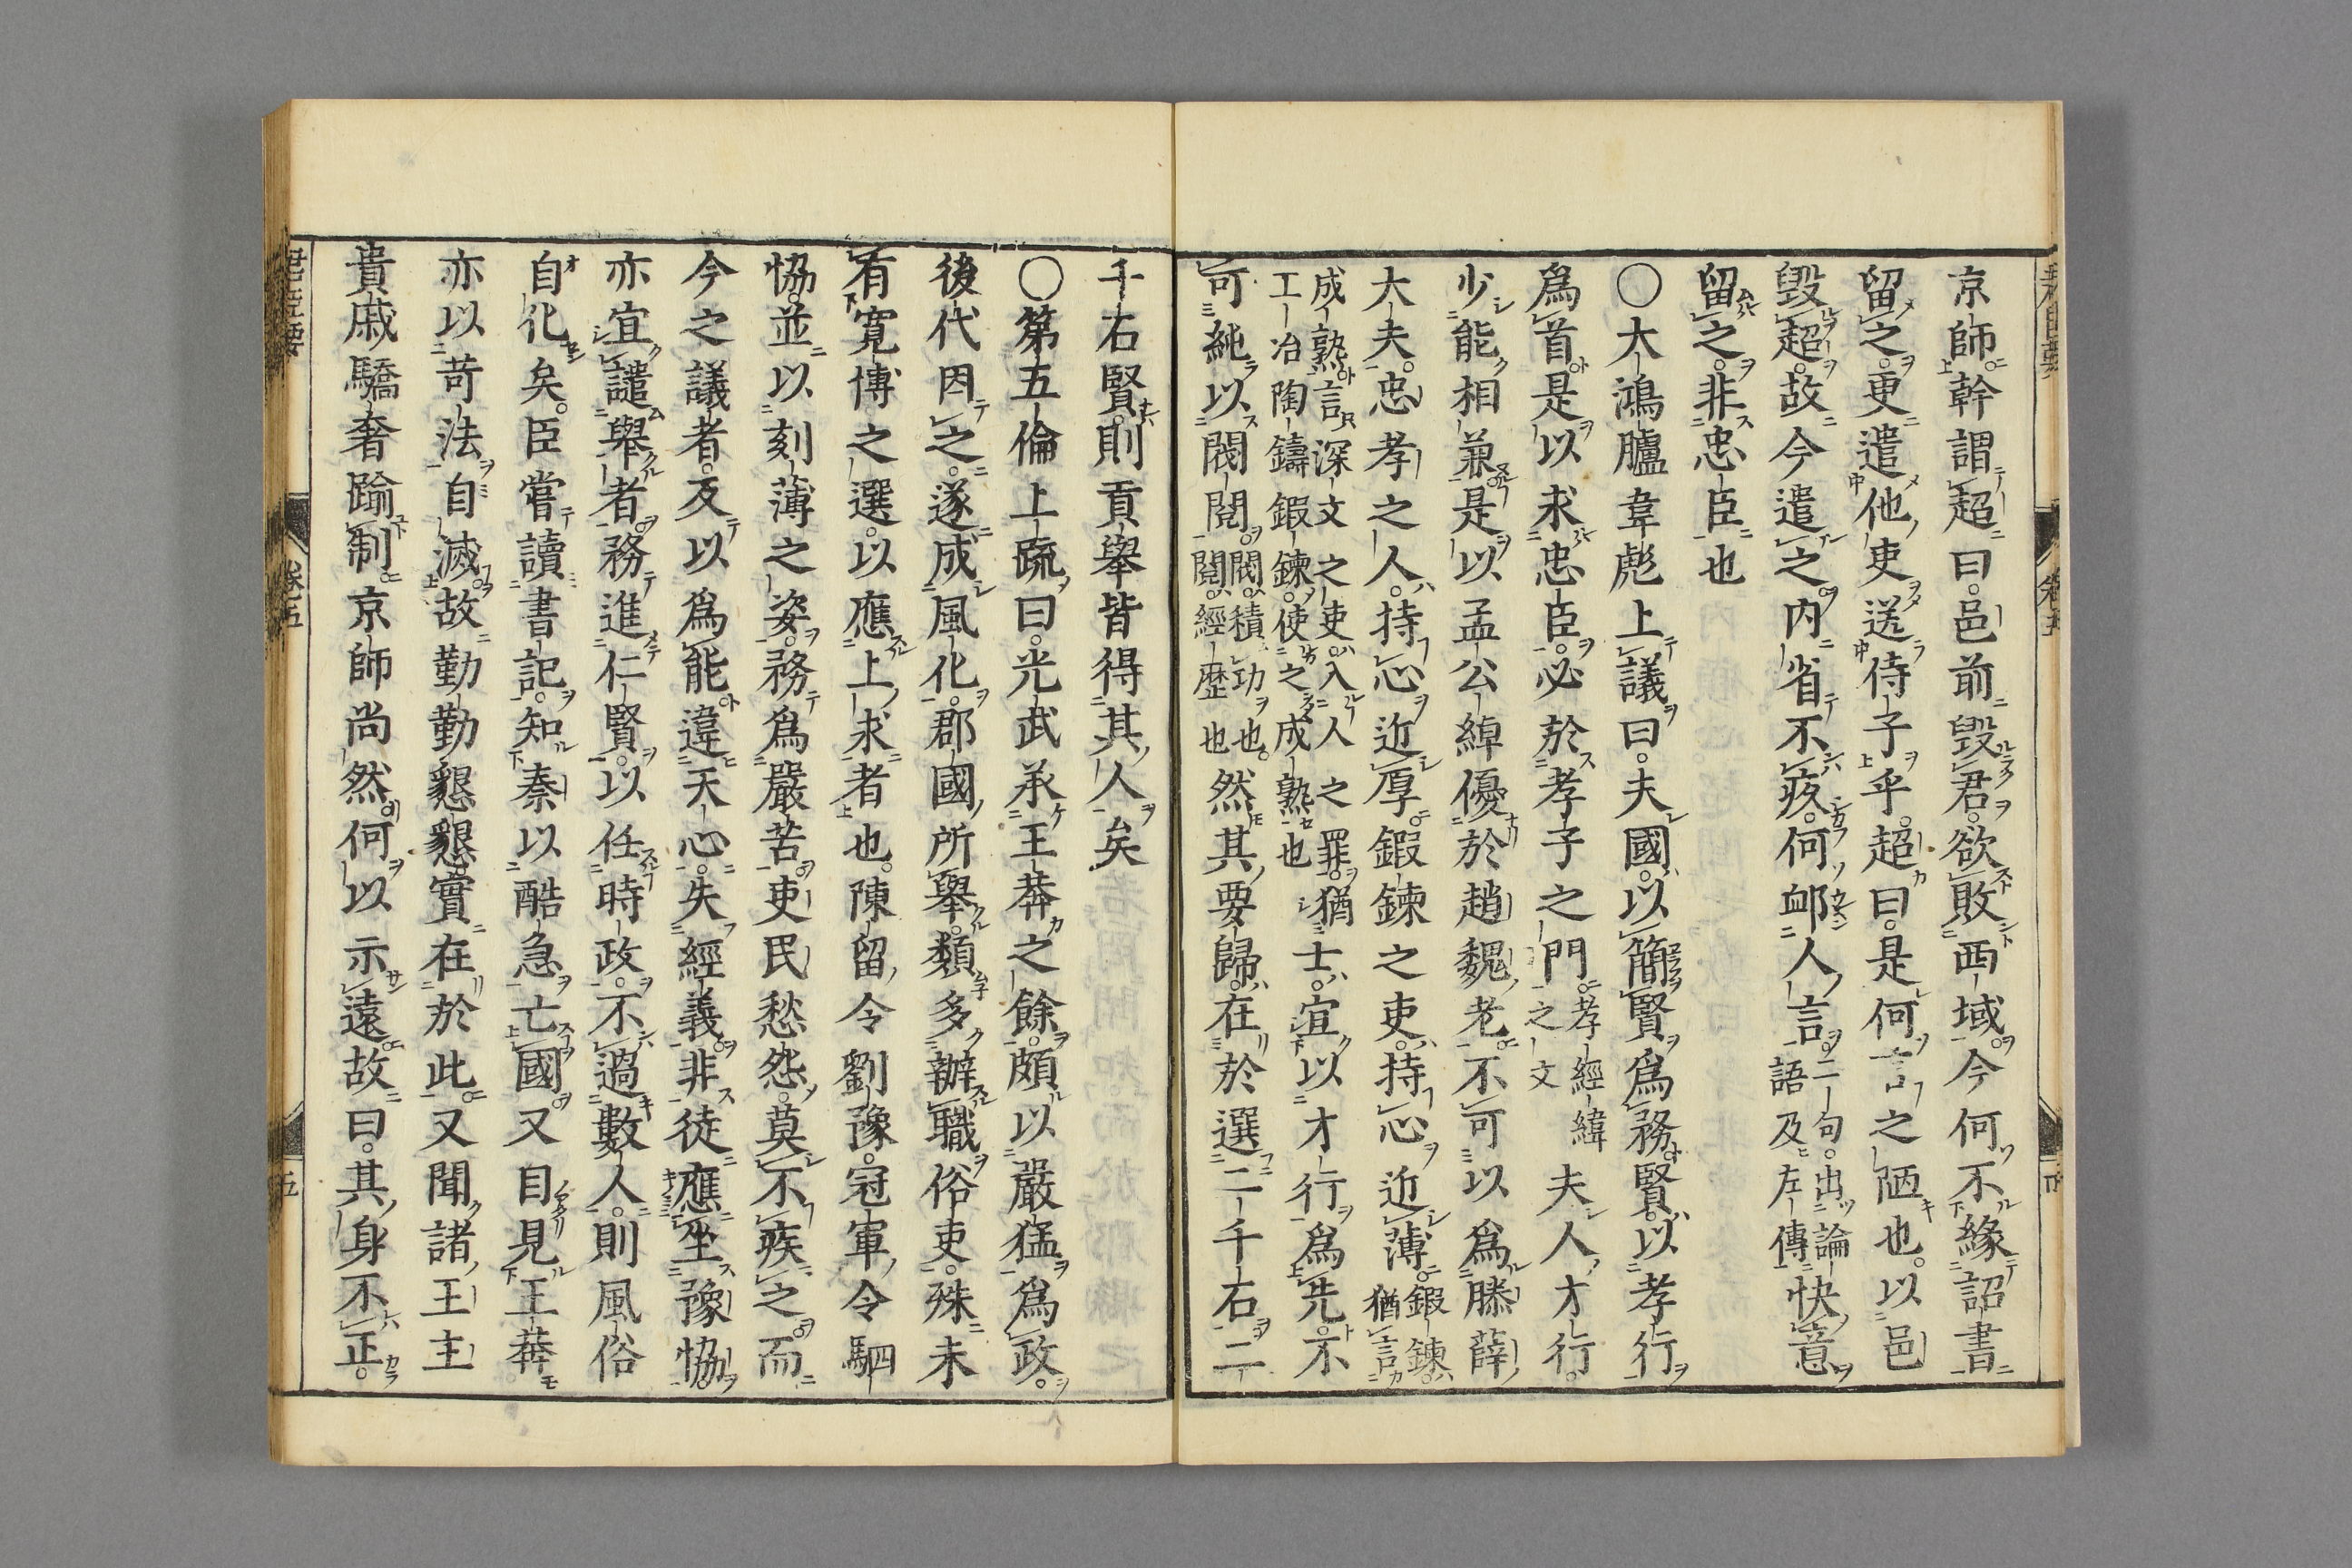 京師幹謂超曰邑前毀君欲敗西域今何不緣詔書
留之更遣他吏送侍子乎超曰是何言之陋也以邑
毀超故今遣之内省不疚何䘏人言二句出論語及左傳快意
留之非忠臣也
〇大鴻臚韋彪上議曰夫國以簡賢爲務賢以孝行
爲首是以求忠臣必於孝子之門孝經緯之文夫人才行
少能相兼是以孟公綽優於趙魏老不可以爲滕薛
大夫忠孝之人持心近厚鍛鍊之吏持心近薄鍛鍊猶言
成熟言深文之吏入人之罪猶工冶陶鑄鍛鍊使之成熟也士宜以才行爲先不
可純以閥閱閥積功也閱經歷也然其要歸在於選二千石二
千石賢則貢舉皆得其人矣
〇第五倫上疏曰光武承王莽之餘頗以嚴猛爲政
後代因之遂成風化郡國所舉類多辦職俗吏殊未
有寬博之選以應上求者也陳留令劉豫冠軍令駟
恊並以刻薄之姿務爲嚴苦吏民愁怨莫不疾之而
今之議者反以爲能違天心失經義非徒應坐豫恊
亦宜譴舉者務進仁賢以任時政不過數人則風俗
自化矣臣嘗讀書記知秦以酷急亡國又自見王莽
亦以苛法自滅故勤勤懇懇實在於此又聞諸王主
貴戚驕奢踰制京師尚然何以示遠故曰其身不正
卷五
五